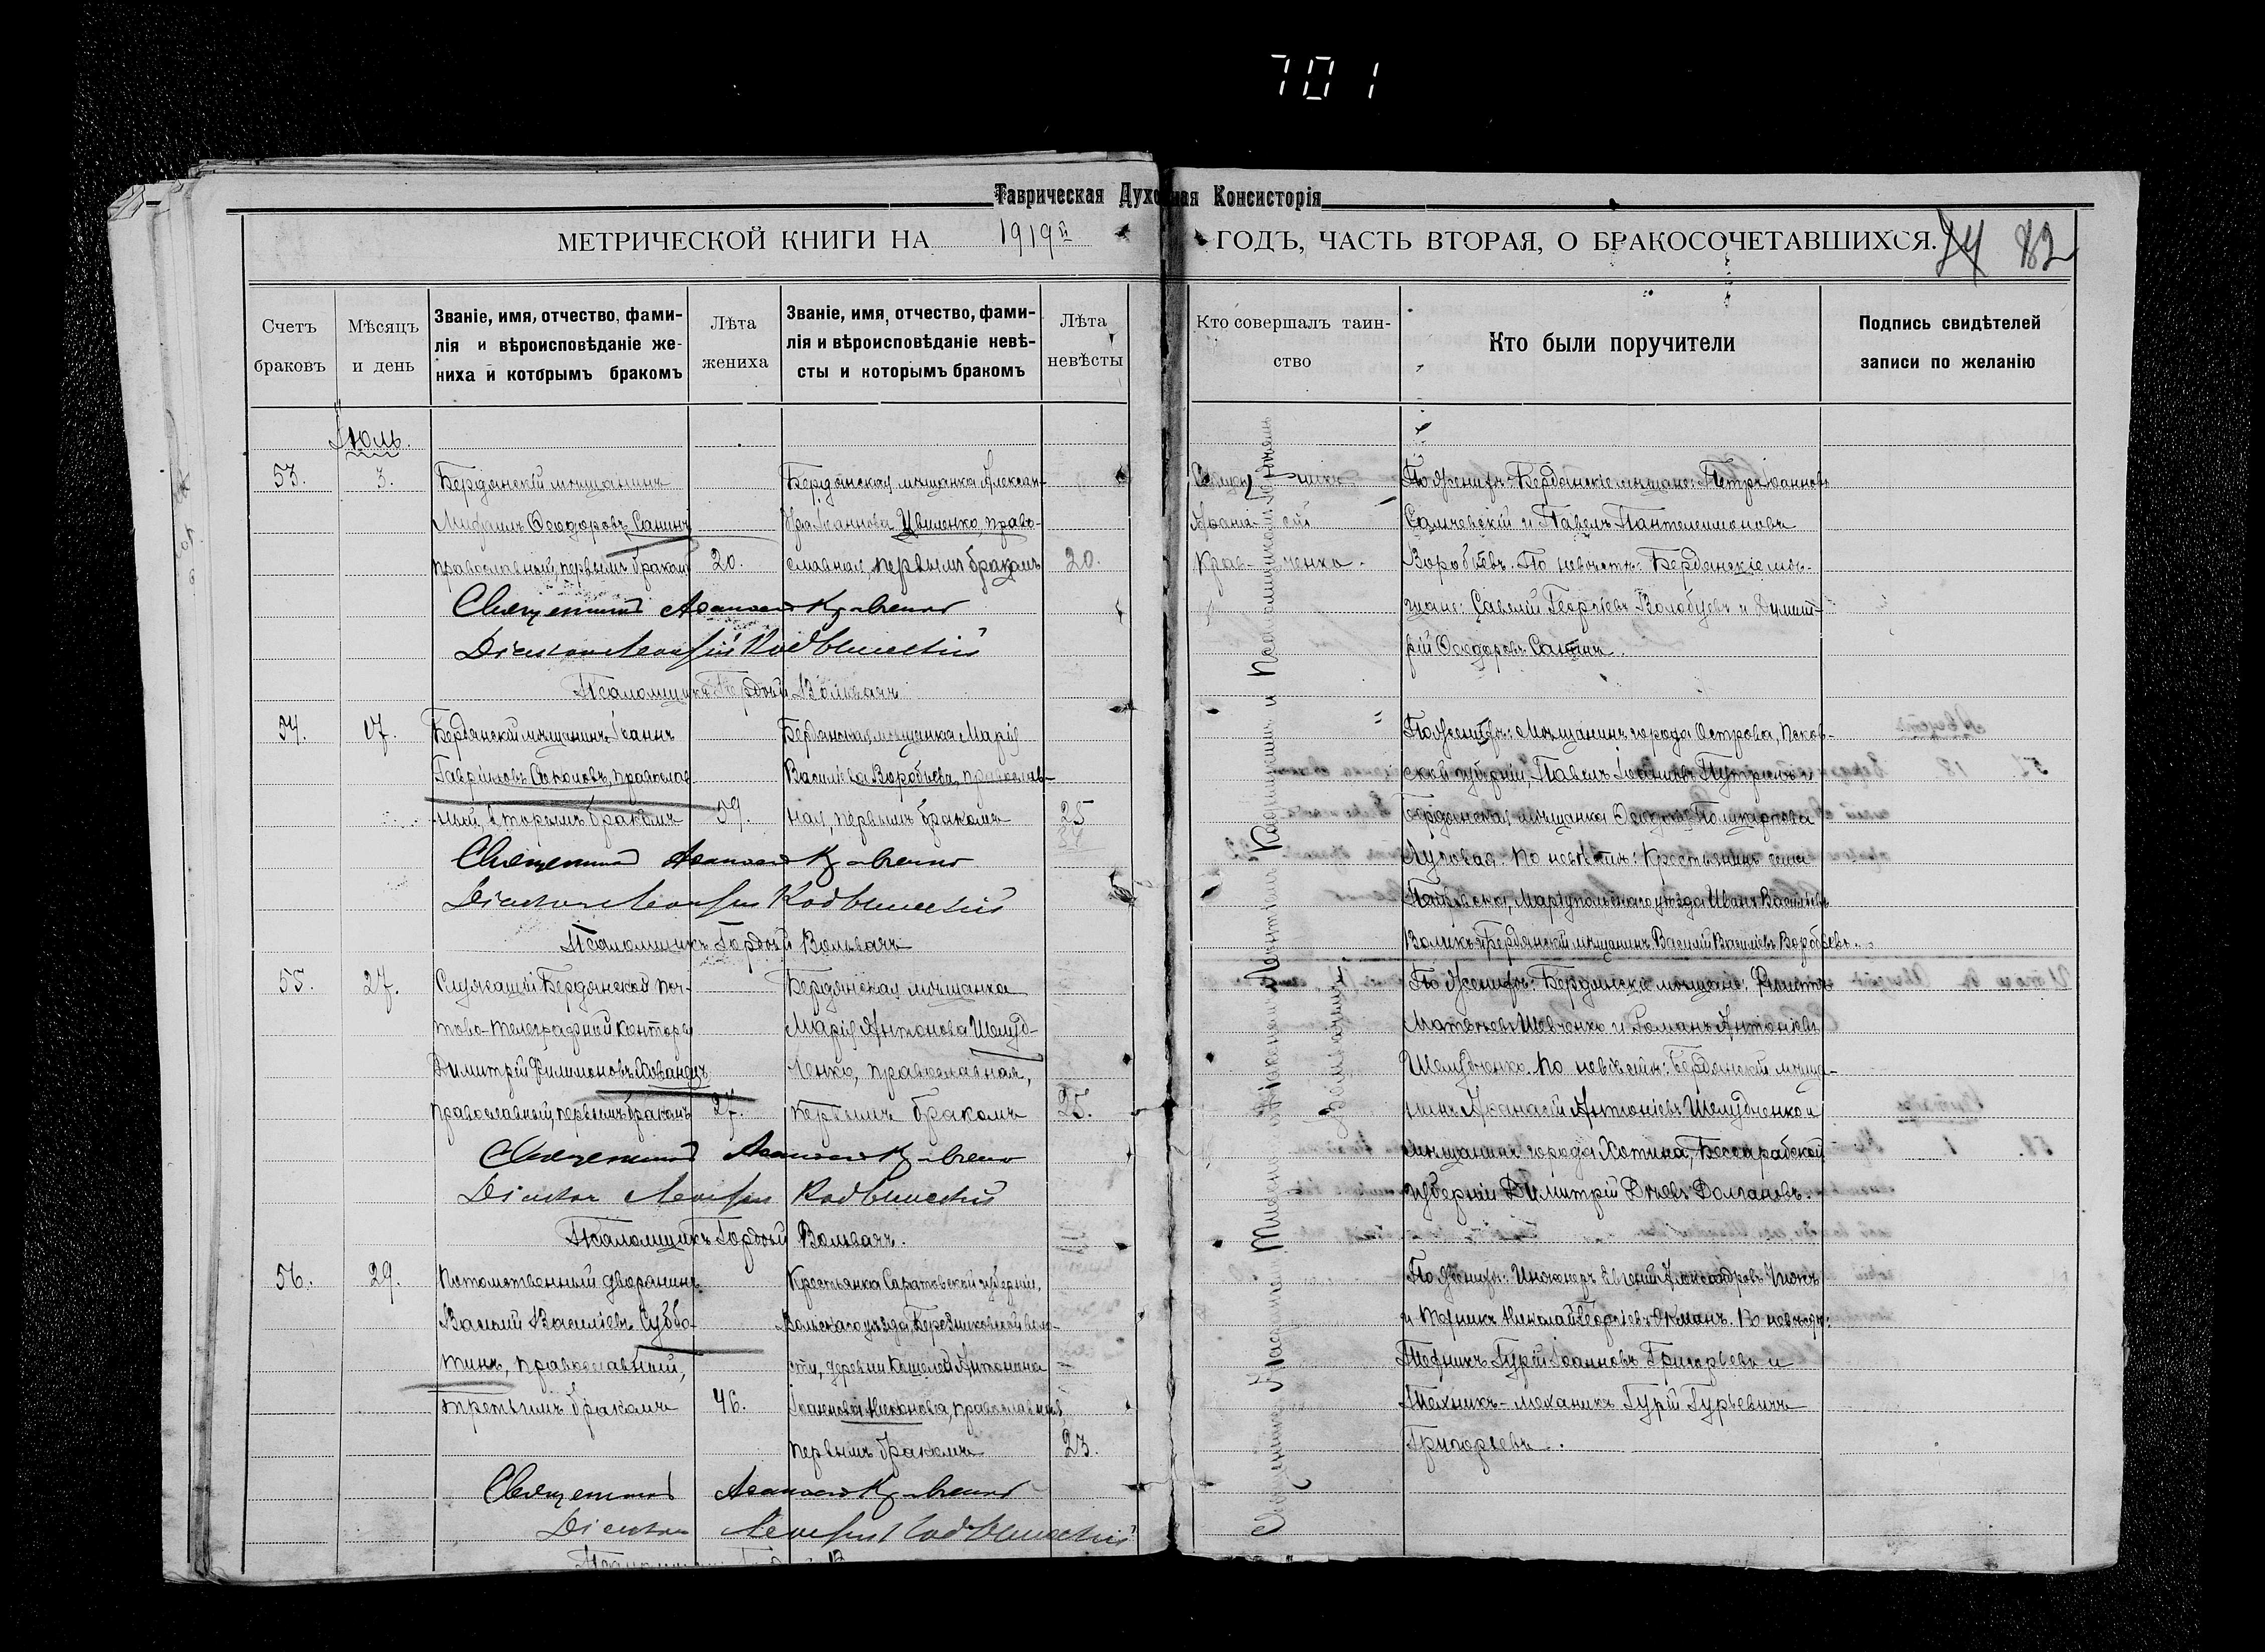 701
Таврическая Духовная Консисторія
МЕТРИЧЕСКОЙ КНИГИ НА 1919й ГОДЪ, ЧАСТЬ ВТОРАЯ, О БРАКОСОЧЕТАВШИХСЯ.
74 82
Счетъ браковъ
Мѣсяцъ и день
Званіе, имя, отчество, фами-
лія и вѣроисповѣданіе же-
ниха и которымъ бракомъ
Лѣта жениха
Званіе, имя, отчество, фами-
лія и вѣроисповѣданіе невѣ-
сты и которымъ бракомъ
Лѣта невѣсты
Кто совершалъ таин-
ство
Кто были поручители
Подпись свидѣтелей
записи по желанію
Іюль.
53.
3.
Бердянскій мѣщанинъ
Михаилъ Ѳеодоровъ Санинъ
православный, первымъ бракомъ
20.
Бердянская мѣщанка Алексан-
дра Іоаннова Цвиленко, право-
славная, первымъ бракомъ
20.
Священникъ
Аѳанасій
Кравченко.
По женихѣ: Бердянскіе мѣщане: Петръ Іоанновъ
и Павелъ Пантелеимоновъ
Воробьевъ. По невѣстѣ: Бердянскіе мѣ-
щане: Савелій Георгіевъ Волобуевъ и Димит-
рій Ѳеодоровъ Санинъ.
Священникъ Аѳанасій Кравченко
Діаконъ
Псаломщикъ Гордѣй Вольвачъ
54.
17.
Бердянскій мѣщанинъ Іоаннъ
Гавріиловъ Соколовъ, православ-
ный, вторымъ бракомъ
59.
Бердянская мѣщанка Марія
Василіева Воробьева, православ-
ная, первымъ бракомъ
25
"
По женихѣ: Мѣщанинъ города Острова, Псков-
ской губерніи, Павелъ Іоанновъ
Бердянская мѣщанка
Луговая. По невѣстѣ: Крестьянинъ села
Мариупольскаго уѣзда Иванъ Василіевъ
Воликъ и Бердянскій мѣщанинъ Василій Василіевъ Воробьевъ.
Священникъ Аѳанасій Кравченко
Діаконъ
Псаломщикъ Гордѣй Вольвачъ
55.
27.
Служащій Бердянской поч-
тово-телеграфной конторы
Димитрій Филимоновъ
православный, первымъ бракомъ
27.
Бердянская мѣщанка
Марія Антонова Шелуд-
ченко, православная,
первымъ бракомъ
25.
По женихѣ: Бердянскіе мѣщане:
Матвѣевъ Шевченко и Романъ Антоновъ
Шелудченко. По невѣстѣ: Бердянскій мѣща-
нинъ Аѳанасій Антоніевъ Шелудченко и
мѣщанинъ города Хотина, Бессарабской
губерніи Димитрій Долгановъ.
Священникъ Аѳанасій Кравченко
Діаконъ
Псаломщикъ Гордѣй Вольвачъ.
56.
29.
Потомственный дворянинъ
Василій Василіевъ Суббо-
тинъ, православный,
третьимъ бракомъ
46.
Крестьянка Саратовской губерніи,
Вольскаго уѣзда, Березниковской воло-
сти, деревни Антонина
Іоаннова Никонова, православная,
первымъ бракомъ
23.
По женихѣ: Инженеръ Евгеній Александровъ
и техникъ Николай Георгіевъ По невѣстѣ:
Техникъ Гурій Іоанновъ Григорьевъ и
Техникъ-механикъ Гурій Гурьевичъ
Григорьевъ.
Священникъ Аѳанасій Кравченко
Діаконъ